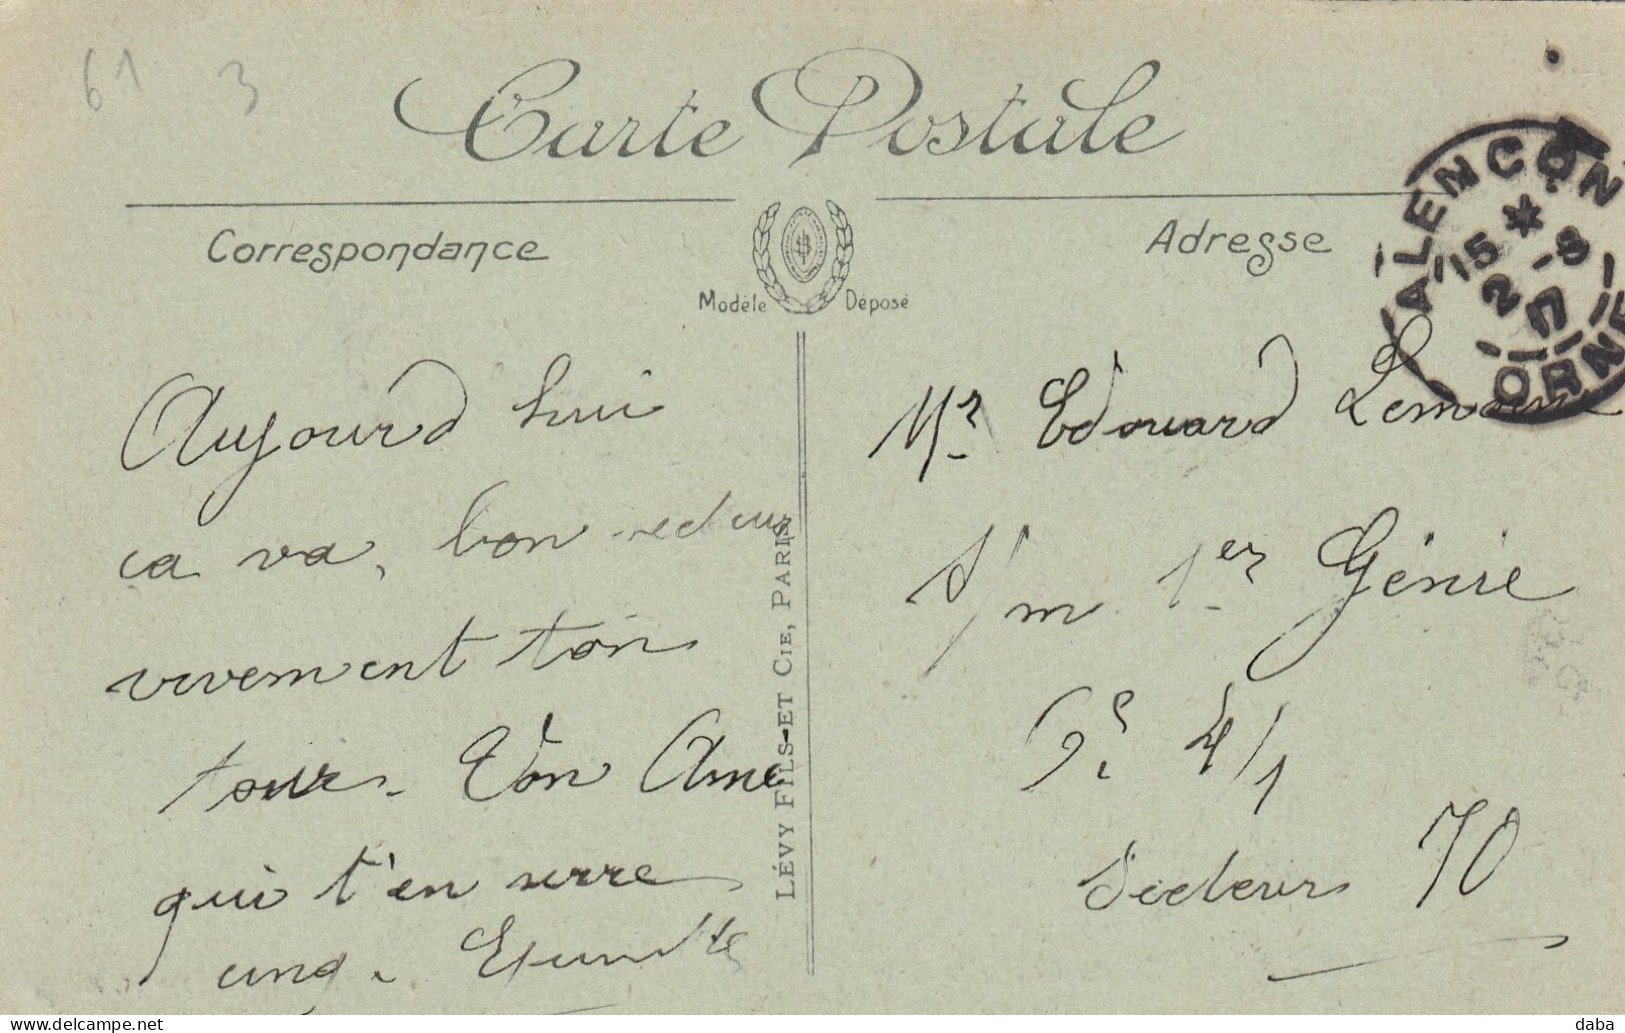 61 3
Carte Postale
Correspondance
Adresse
Modèle Déposé
ALENÇON
15 *
2 -8
17
ORNE
Aujourd hui
ca va, bon
vivement ton
tour. Ton Ami
qui t'en serre
cinq.
LÉVY FILS ET CIE, PARIS
Mr Edouard Lemoine
S/m 1er Génie
Cie 4/1
Secteur 70
delcampe.net
daba